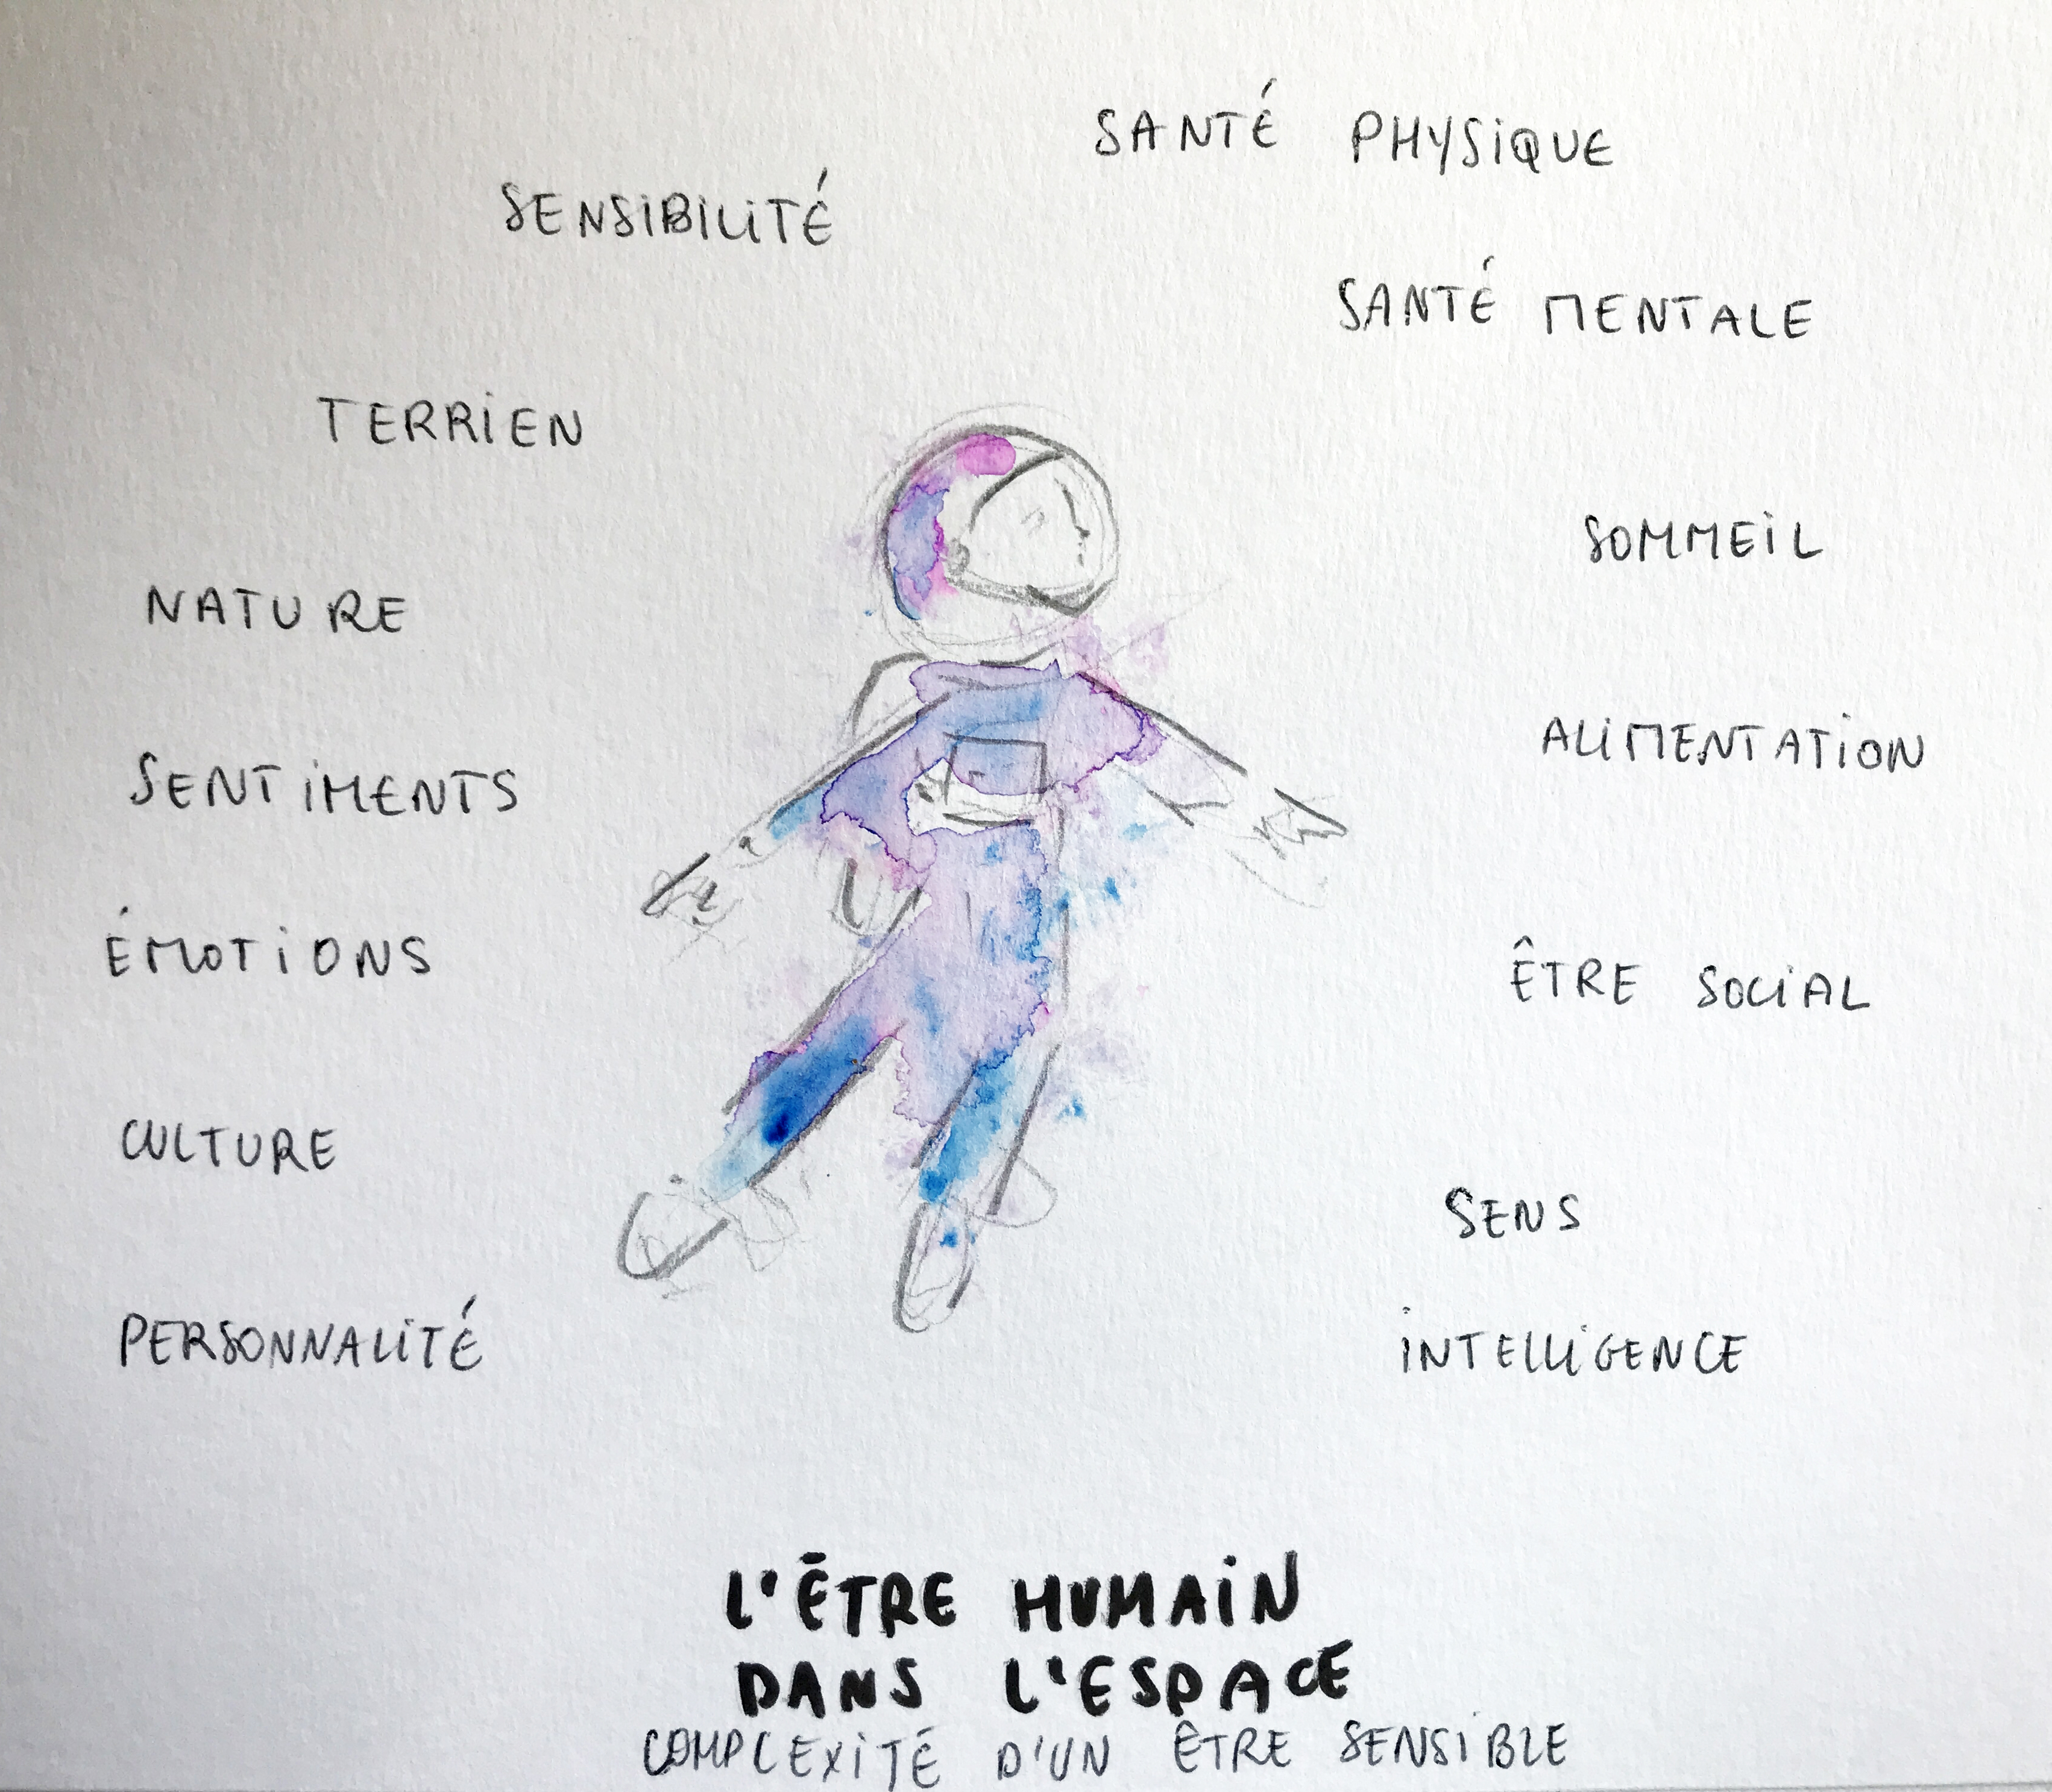 SANTÉ PHYSIQUE
SENSIBILITÉ
SANTÉ MENTALE
TERRIEN
SOMMEIL
NATURE
ALIMENTATION
SENTIMENTS
ÉMOTIONS
ÊTRE SOCIAL
CULTURE
SENS
PERSONNALITÉ
INTELLIGENCE
L'ÊTRE HUMAIN
DANS L'ESPACE
COMPLEXITÉ D'UN ÊTRE SENSIBLE